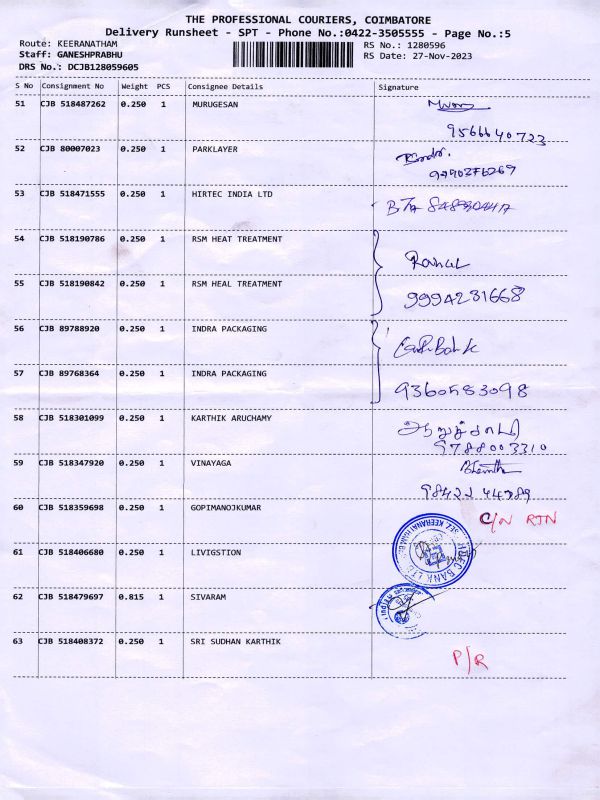 THE PROFESSIONAL COURIERS, COIMBATORE
Delivery Runsheet - SPT - Phone No.:0422-3505555 - Page No.:5
Route: KEERANATHAM
RS No.: 1280596
Staff: GANESHPRABHU
RS Date: 27-Nov-2023
DRS No.: DCJB128059605
S No Consignment No Weight PCS Consignee Details Signature
51 CJB 518487262 0.250 1 MURUGESAN
9566640723
52 CJB 80007023 0.250 1 PARKLAYER
53 CJB 518471555 0.250 1 HIRTEC INDIA LTD
54 CJB 518190786 0.250 1 RSM HEAT TREATMENT
55 CJB 518190842 0.250 1 RSM HEAL TREATMENT
9994231668
56 CJB 89788920 0.250 1 INDRA PACKAGING
57 CJB 89768364 0.250 1 INDRA PACKAGING
9360583098
58 CJB 518301099 0.250 1 KARTHIK ARUCHAMY
9788003310
59 CJB 518347920 0.250 1 VINAYAGA
98422 44789
60 CJB 518359698 0.250 1 GOPIMANOJKUMAR C/N RTN
61 CJB 518406680 0.250 1 LIVIGSTION
62 CJB 518479697 0.815 1 SIVARAM
63 CJB 518408372 0.250 1 SRI SUDHAN KARTHIK
P/R